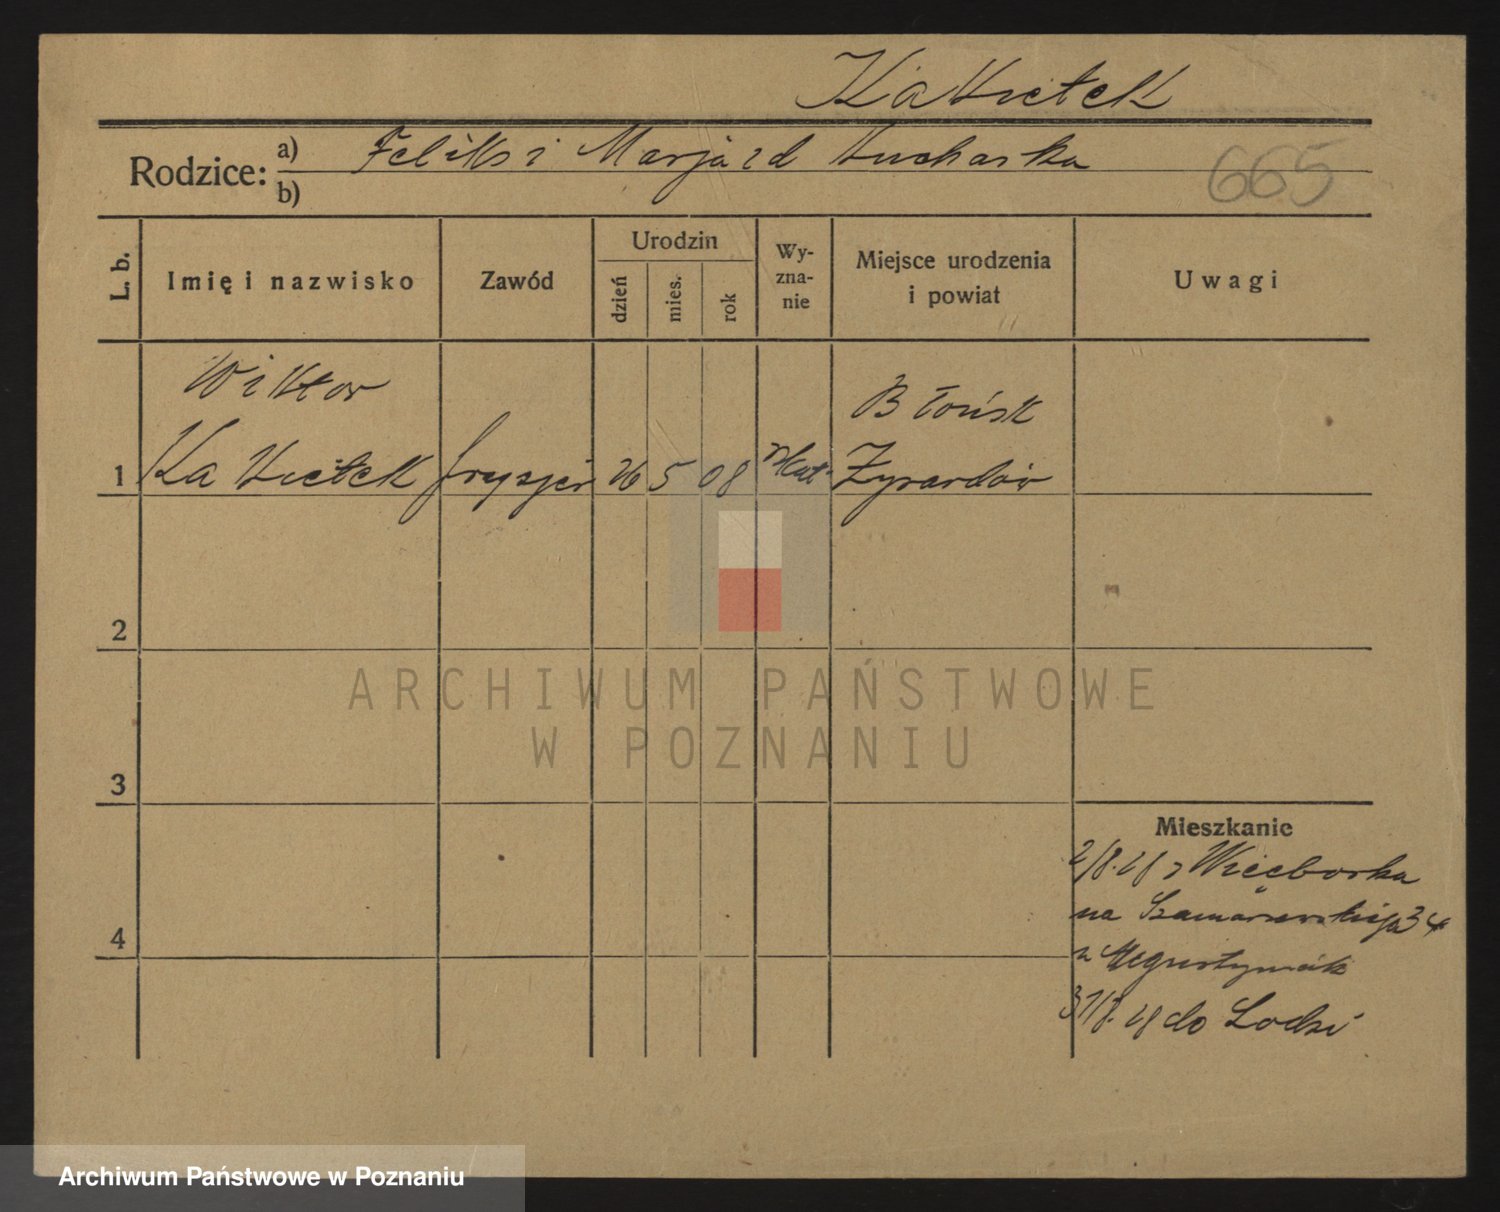 Kawietek
Rodzice: a) Feliks i Marja z d Kucharska
b)
665
L. b.
Imię i nazwisko
Zawód
Urodzin
dzień
mies.
rok
Wy-
zna-
nie
Miejsce urodzenia
i powiat
Uwagi
Wiktor
Błońsk
1 fryzjer 26 5 08 rkat Żyrardów
2
3
4
Mieszkanie
2/8.28 z Więcborka
na Szamarzewskiego 34
31/8.28 do Łodzi
ARCHIWUM PAŃSTWOWE
W POZNANIU
Archiwum Państwowe w Poznaniu